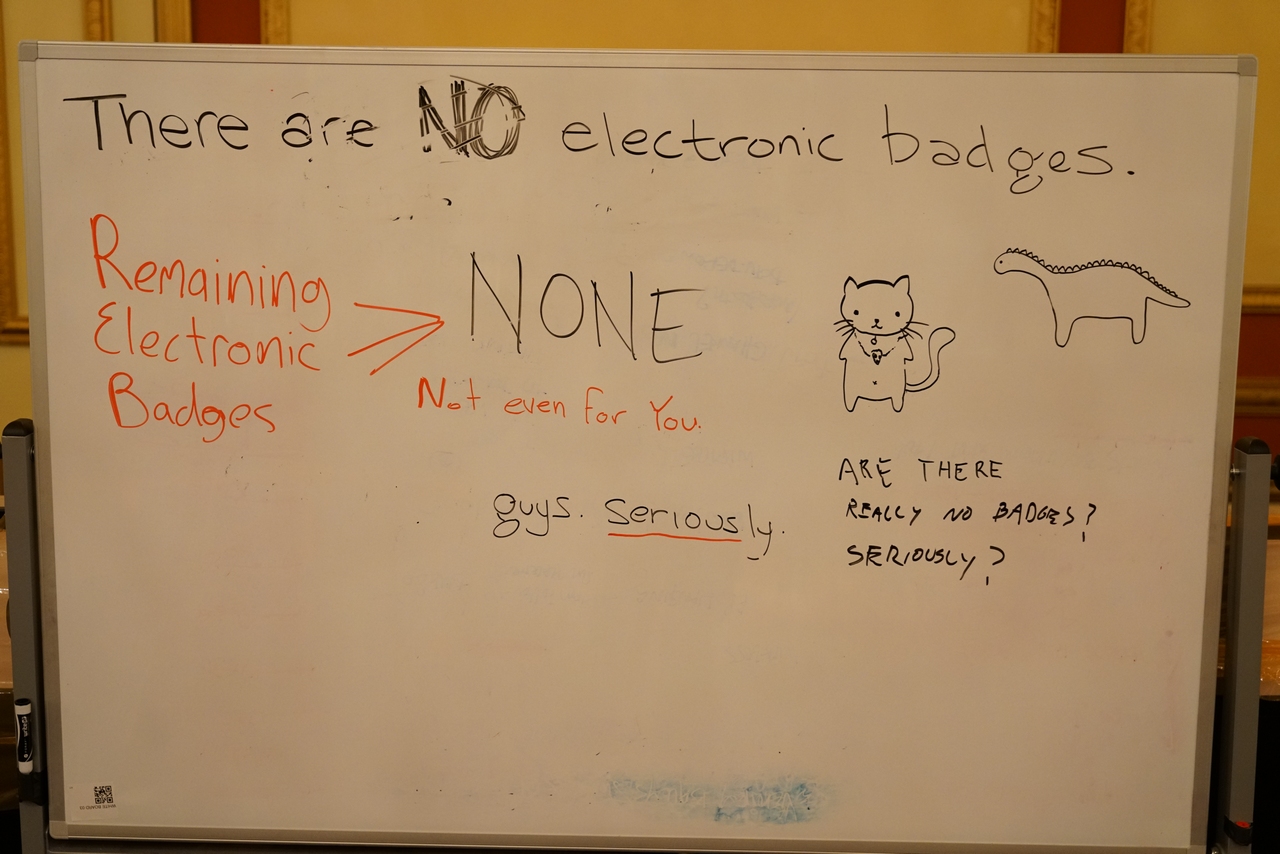 There are NO electronic badges.
Remaining
Electronic
Badges
NONE
Not even for You.
guys. Seriously.
ARE THERE
REALLY NO BADGES?
SERIOUSLY?
WHITE BOARD